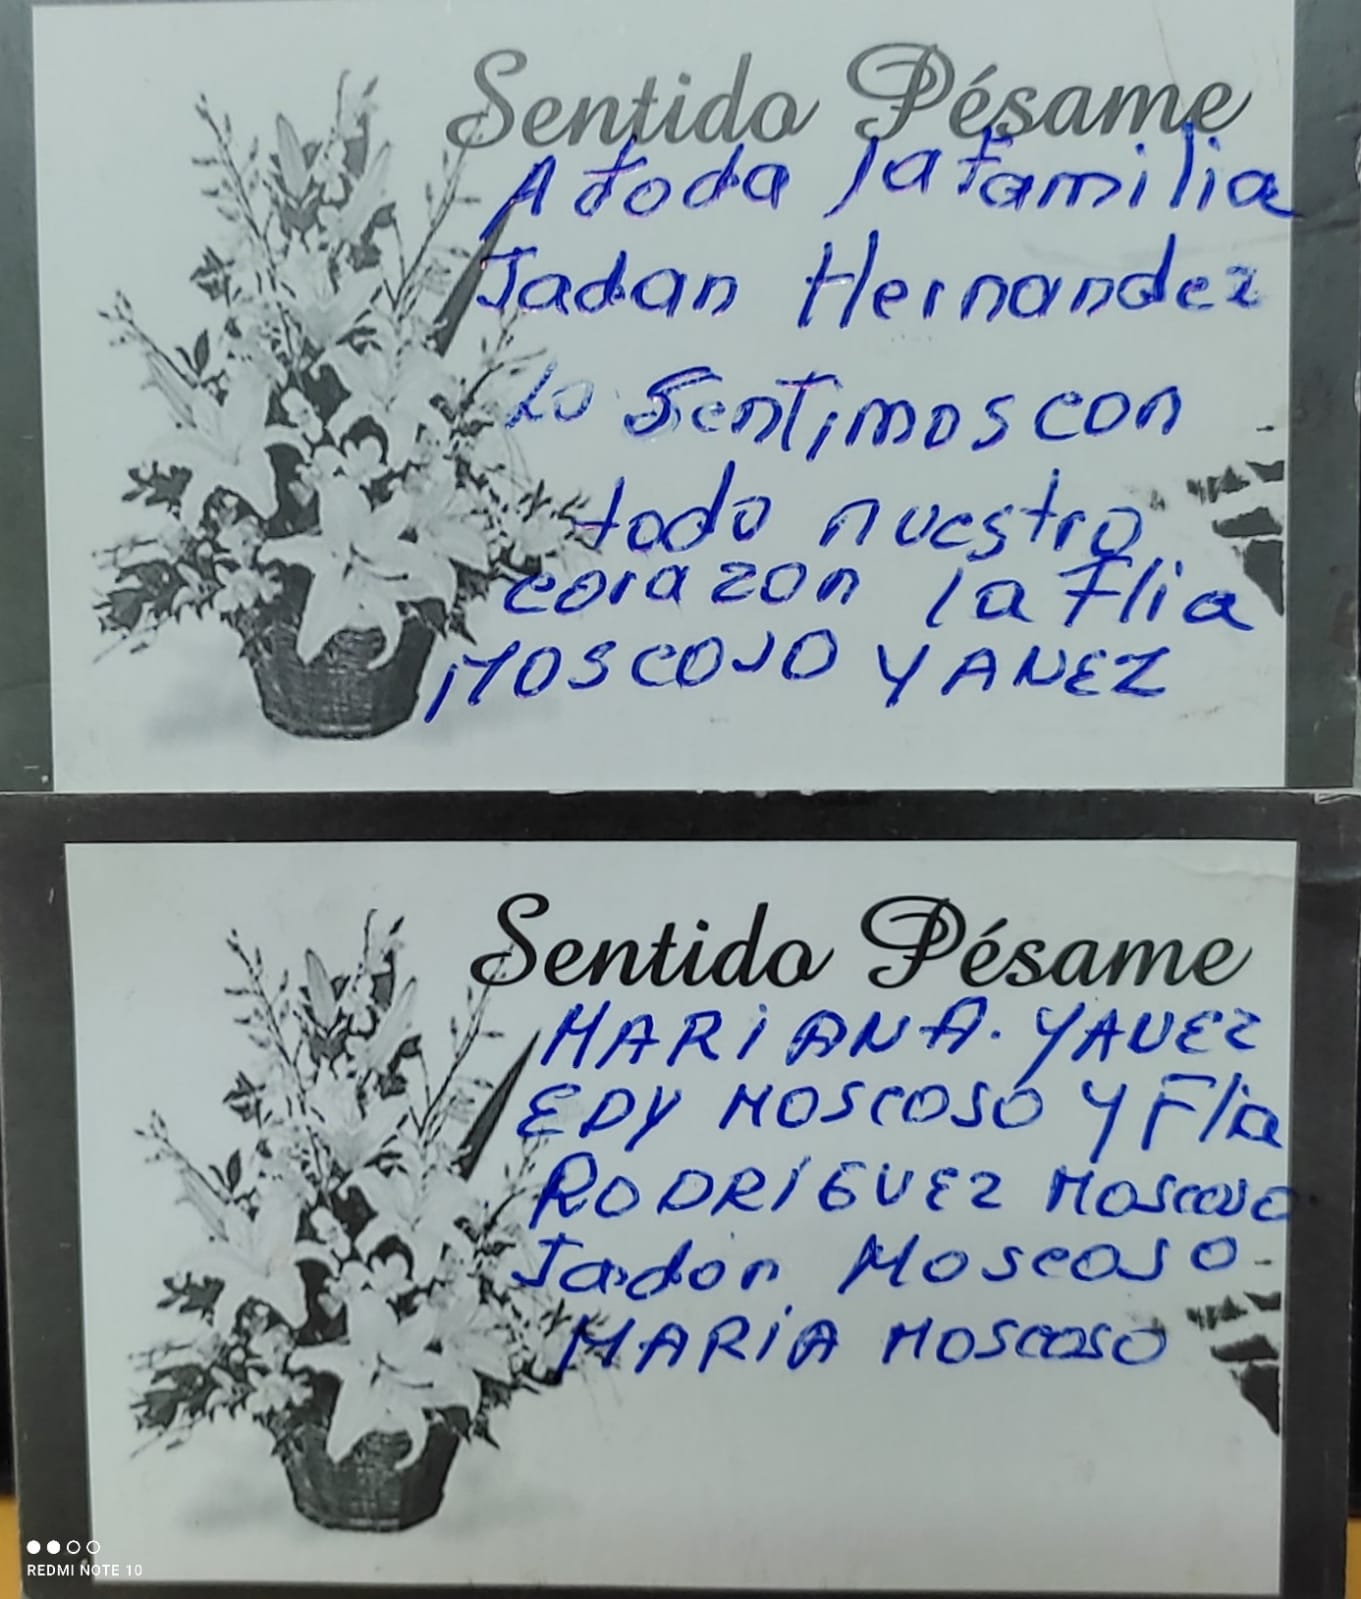 Sentido Pésame
A toda la familia
Jadan Hernandez
Lo Sentimos con
todo nuestro
corazon la Flia
MOSCOSO YANEZ
Sentido Pésame
MARIANA. YANEZ
EDY MOSCOSO Y Flia
RODRIGUEZ Moscoso
Jadan Moscoso
MARIA MOSCOSO
REDMI NOTE 10